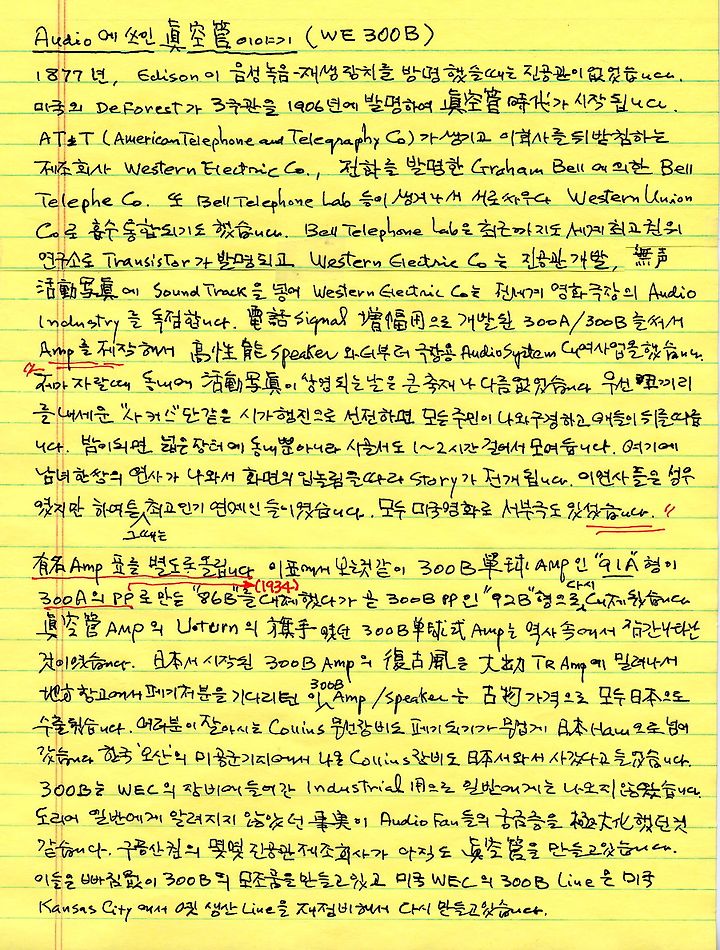 Audio에 쓰인 眞空管 이야기 (WE 300B)
1877년, Edison이 음성녹음-재생장치를 발명했을때는 진공관이 없었습니다.
미국의 DeForest가 3극관을 1906년에 발명하여 眞空管 時代가 시작됩니다.
AT&T (American Telephone and Telegraphy Co)가 생기고 이회사를 뒤받침하는
제조회사 Western Electric Co., 전화를 발명한 Graham Bell에 의한 Bell
Telephe Co. 또 Bell Telephone Lab 등이 생겨나서 서로싸우다 Western Union
Co로 흡수통합되기도 했습니다. Bell Telephone Lab은 최근까지도 세계최고권위
연구소로 Transistor가 발명되고 Western Electric Co는 진공관개발, 無声
活動写眞에 Sound Track을 넣어 Western Electric Co는 전세계 영화극장의 Audio
Industry를 독점합니다. 電話 Signal 增幅用으로 개발된 300A/300B를써서
Amp를 제작해서 高性能 Speaker와더부터 극장용 Audio System 대여사업을했습니다.
"제가 자랄때 동네에 活動写眞이 상영되는날은 큰축제나 다름없었습니다 우선 코끼리
를내세운 "사커스"단같은 시가행진으로 선전하면 모든주민이 나와구경하고 애들이 뒤를따릅
니다. 밤이되면 넓은장터에 동네뿐아니라 시골서도 1~2시간 걸어서 모여듭니다. 여기에
남녀한쌍의 연사가 나와서 화면의 입놀림을따라 Story가 전개됩니다. 이연사들은 성우
였지만 하여튼 그때는 최고인기 연예인들이였습니다. 모두 미국영화로 서부극도 있었습니다."
有名 Amp 표를 별도로올립니다 이표에서 보는것같이 300B 單球 AMP인 "91A"형이
300A의 PP로 만든 "86B"를 (1934) 대체했다가 곧 300B PP인 "92B"형으로 다시 대체됬습니다
眞空管 AMP의 Uoturn의 旗手였던 300B 單球式 Amp는 역사속에서 잠간나타난
것이였습니다. 日本서 시작된 300B Amp의 復古風을 大出力 TR Amp에 밀려나서
地方창고에서 폐기처분을 기다리던 이 300B Amp/Speaker는 古物가격으로 모두日本으로
수출됬습니다. 여러분이 잘아시는 Collins 무선장비도 폐기되기가 무섭게 日本Ham으로넘어
갔습니다 한국 '오산'의 미공군기지에서 나온 Collins 장비도 日本서와서 사갔다고들었습니다.
300B는 WEC의 장비에들어간 Industrial 用으로 일반에게는 나오지않았습니다.
도리어 일반에게 알려지지 않았던 事実이 Audio Fan들의 궁금증을 極大化했던것
같습니다. 구공산권의 몇몇 진공관제조회사가 아직도 眞空管을 만들고있습니다.
이들은 빠짐없이 300B의 모조품을만들고있고 미국 WEC의 300B Line은 미국
Kansas City에서 옛 생산Line을 재정비해서 다시 만들고있습니다.